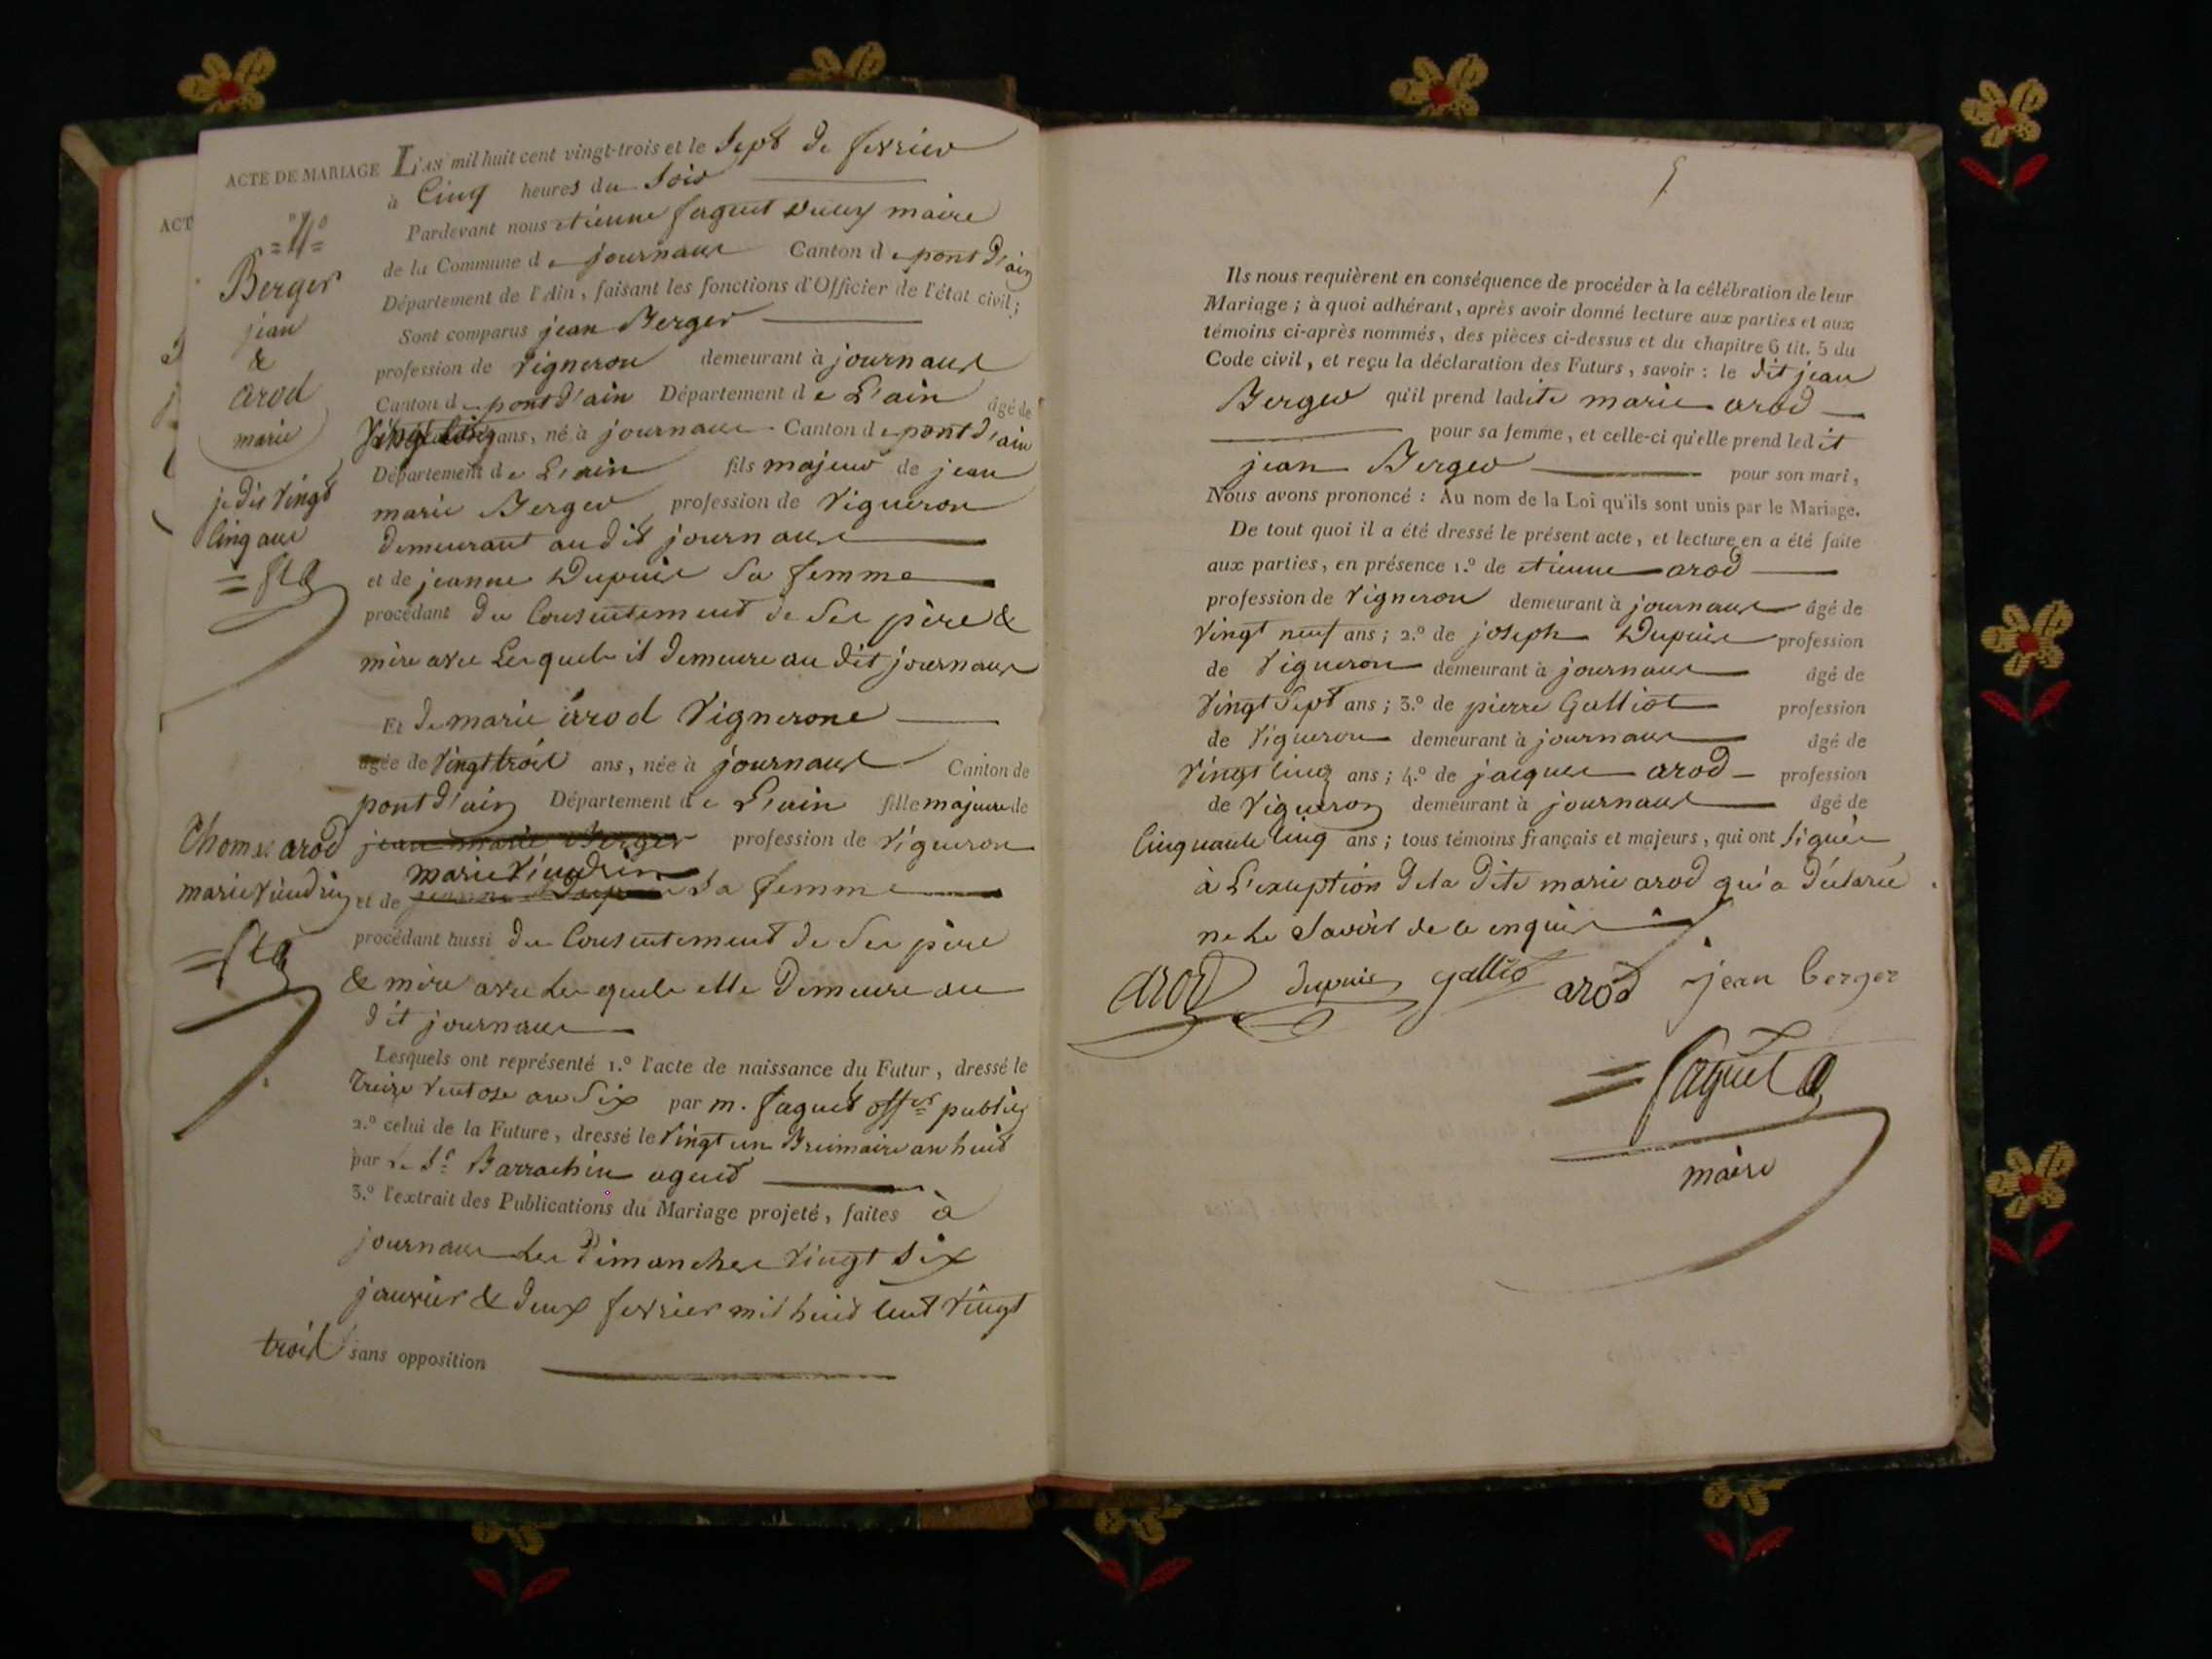 ACTE DE MARIAGE
ACT
Berger
jean
&
arod
marie
je dis vingt
cinq ans
thomas arod
marie vieudrin
L'AN mil huit cent vingt-trois et le sept de fevrier
à Cinq heures du soir
Pardevant nous etienne faguet maire
de la Commune de journaux Canton de pont d'ain
Département de l'Ain, faisant les fonctions d'Officier de l'état civil;
Sont comparus jean Berger
profession de vigneron demeurant à journaux
Canton de pont d'ain Département de L'ain âgé de
vingt cinq ans, né à journaux Canton de pont d'ain
Département de L'ain fils majeur de jean
marie Berger profession de vigneron
demeurant au dit journaux
et de jeanne Dupuis sa femme
procédant du consentement de ses père &
mère avec lesquels il demeure au dit journaux
Et de marie arod vignerone
âgée de vingt trois ans, née à journaux Canton de
pont d'ain Département de L'ain fille majeure de
jean marie Berger profession de vigneron
marie vieudrin
et de jeanne Dupuis sa femme
procédant aussi du consentement de ses père
& mère avec lesquels elle demeure au
dit journaux
Lesquels ont représenté 1.º l'acte de naissance du Futur, dressé le
treize ventose an six par m. faguet offer public
2.º celui de la Future, dressé le vingt un Brumaire an huit
par le Sr Barrachin agent
3.º l'extrait des Publications du Mariage projeté, faites à
journaux les dimanches vingt six
janvier & deux fevrier mil huit cent vingt
trois sans opposition
5
Ils nous requièrent en conséquence de procéder à la célébration de leur
Mariage; à quoi adhérant, après avoir donné lecture aux parties et aux
témoins ci-après nommés, des pièces ci-dessus et du chapitre 6 tit. 5 du
Code civil, et reçu la déclaration des Futurs, savoir: le dit jean
Berger qu'il prend ladite marie arod
pour sa femme, et celle-ci qu'elle prend ledit
jean Berger pour son mari,
Nous avons prononcé: Au nom de la Loi qu'ils sont unis par le Mariage.
De tout quoi il a été dressé le présent acte, et lecture en a été faite
aux parties, en présence 1.º de etienne arod
profession de vigneron demeurant à journaux âgé de
vingt neuf ans; 2.º de joseph Dupuis profession
de vigneron demeurant à journaux âgé de
vingt sept ans; 3.º de pierre Galliot profession
de vigneron demeurant à journaux âgé de
vingt cinq ans; 4.º de jacques arod profession
de vigneron demeurant à journaux âgé de
Cinquante cinq ans; tous témoins français et majeurs, qui ont signés
à L'exception de la dite marie arod qu'a déclaré
ne le savoir de ce enquis
arod dupuis galliot arod jean berger
faguet
maire